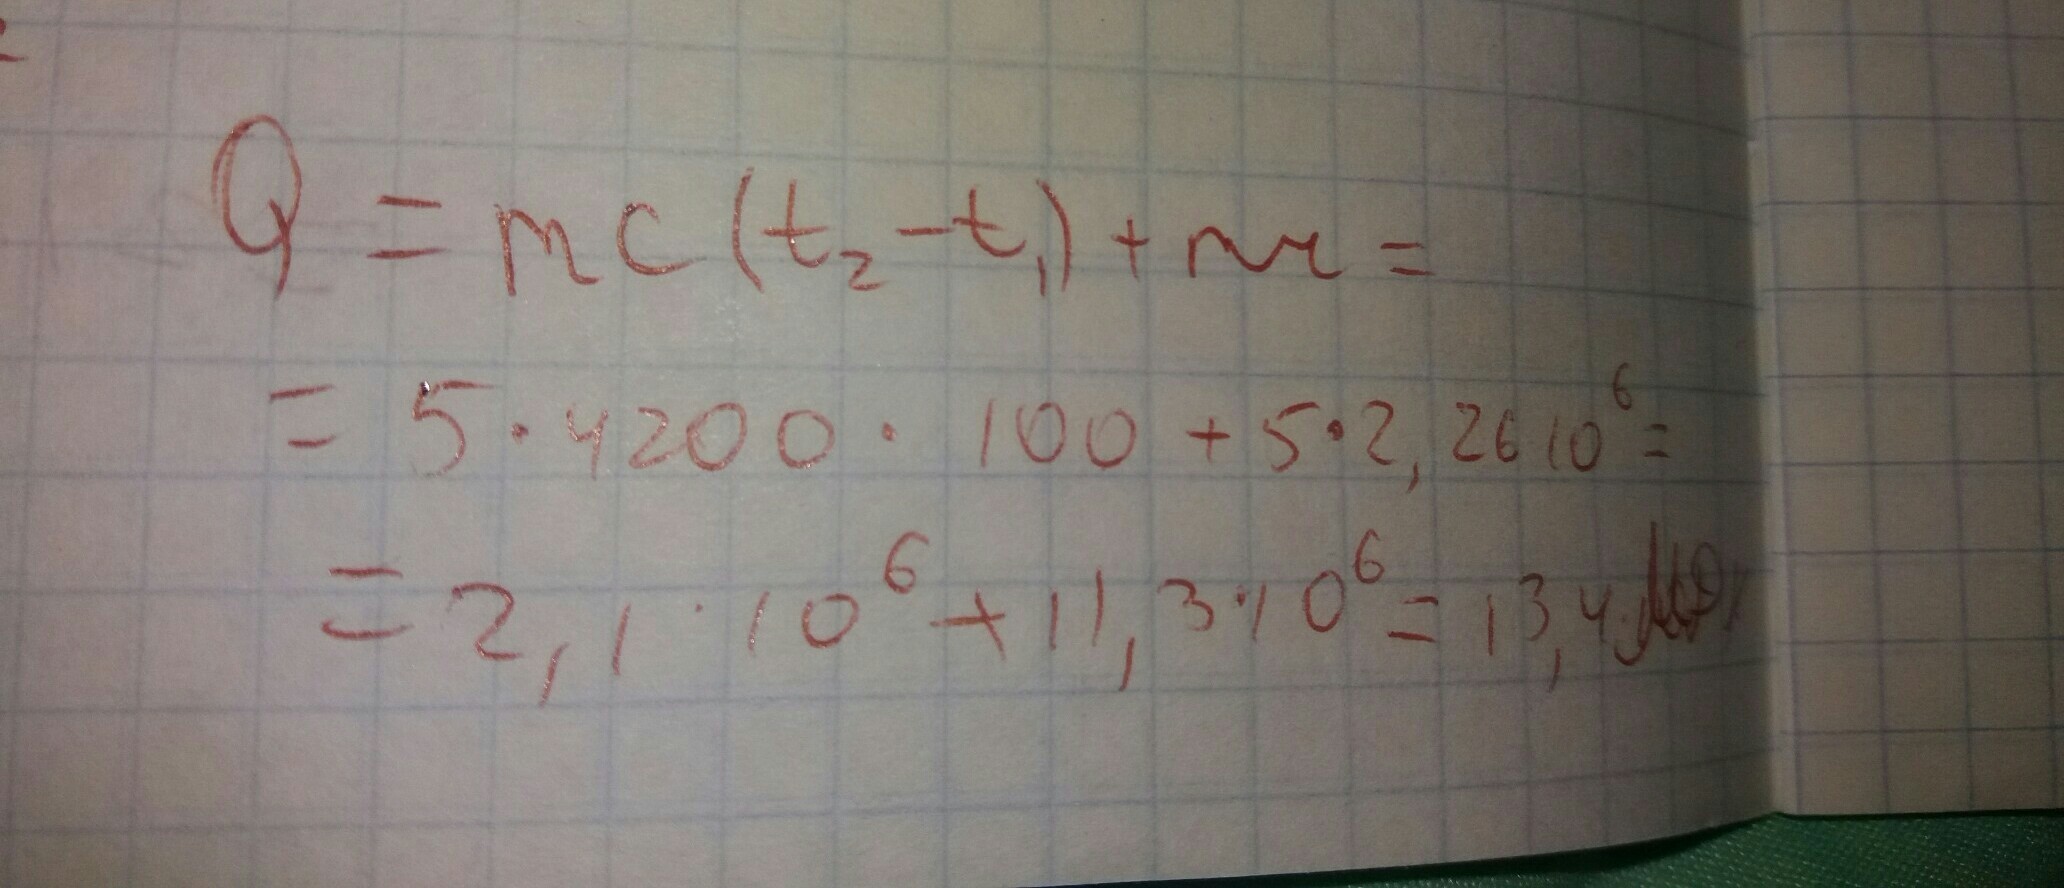 Q = mc(t₂-t₁)+mr =
= 5·4200· 100 + 5·2,26 10⁶ =
= 2,1·10⁶+11,3·10⁶ = 13,4 МДж